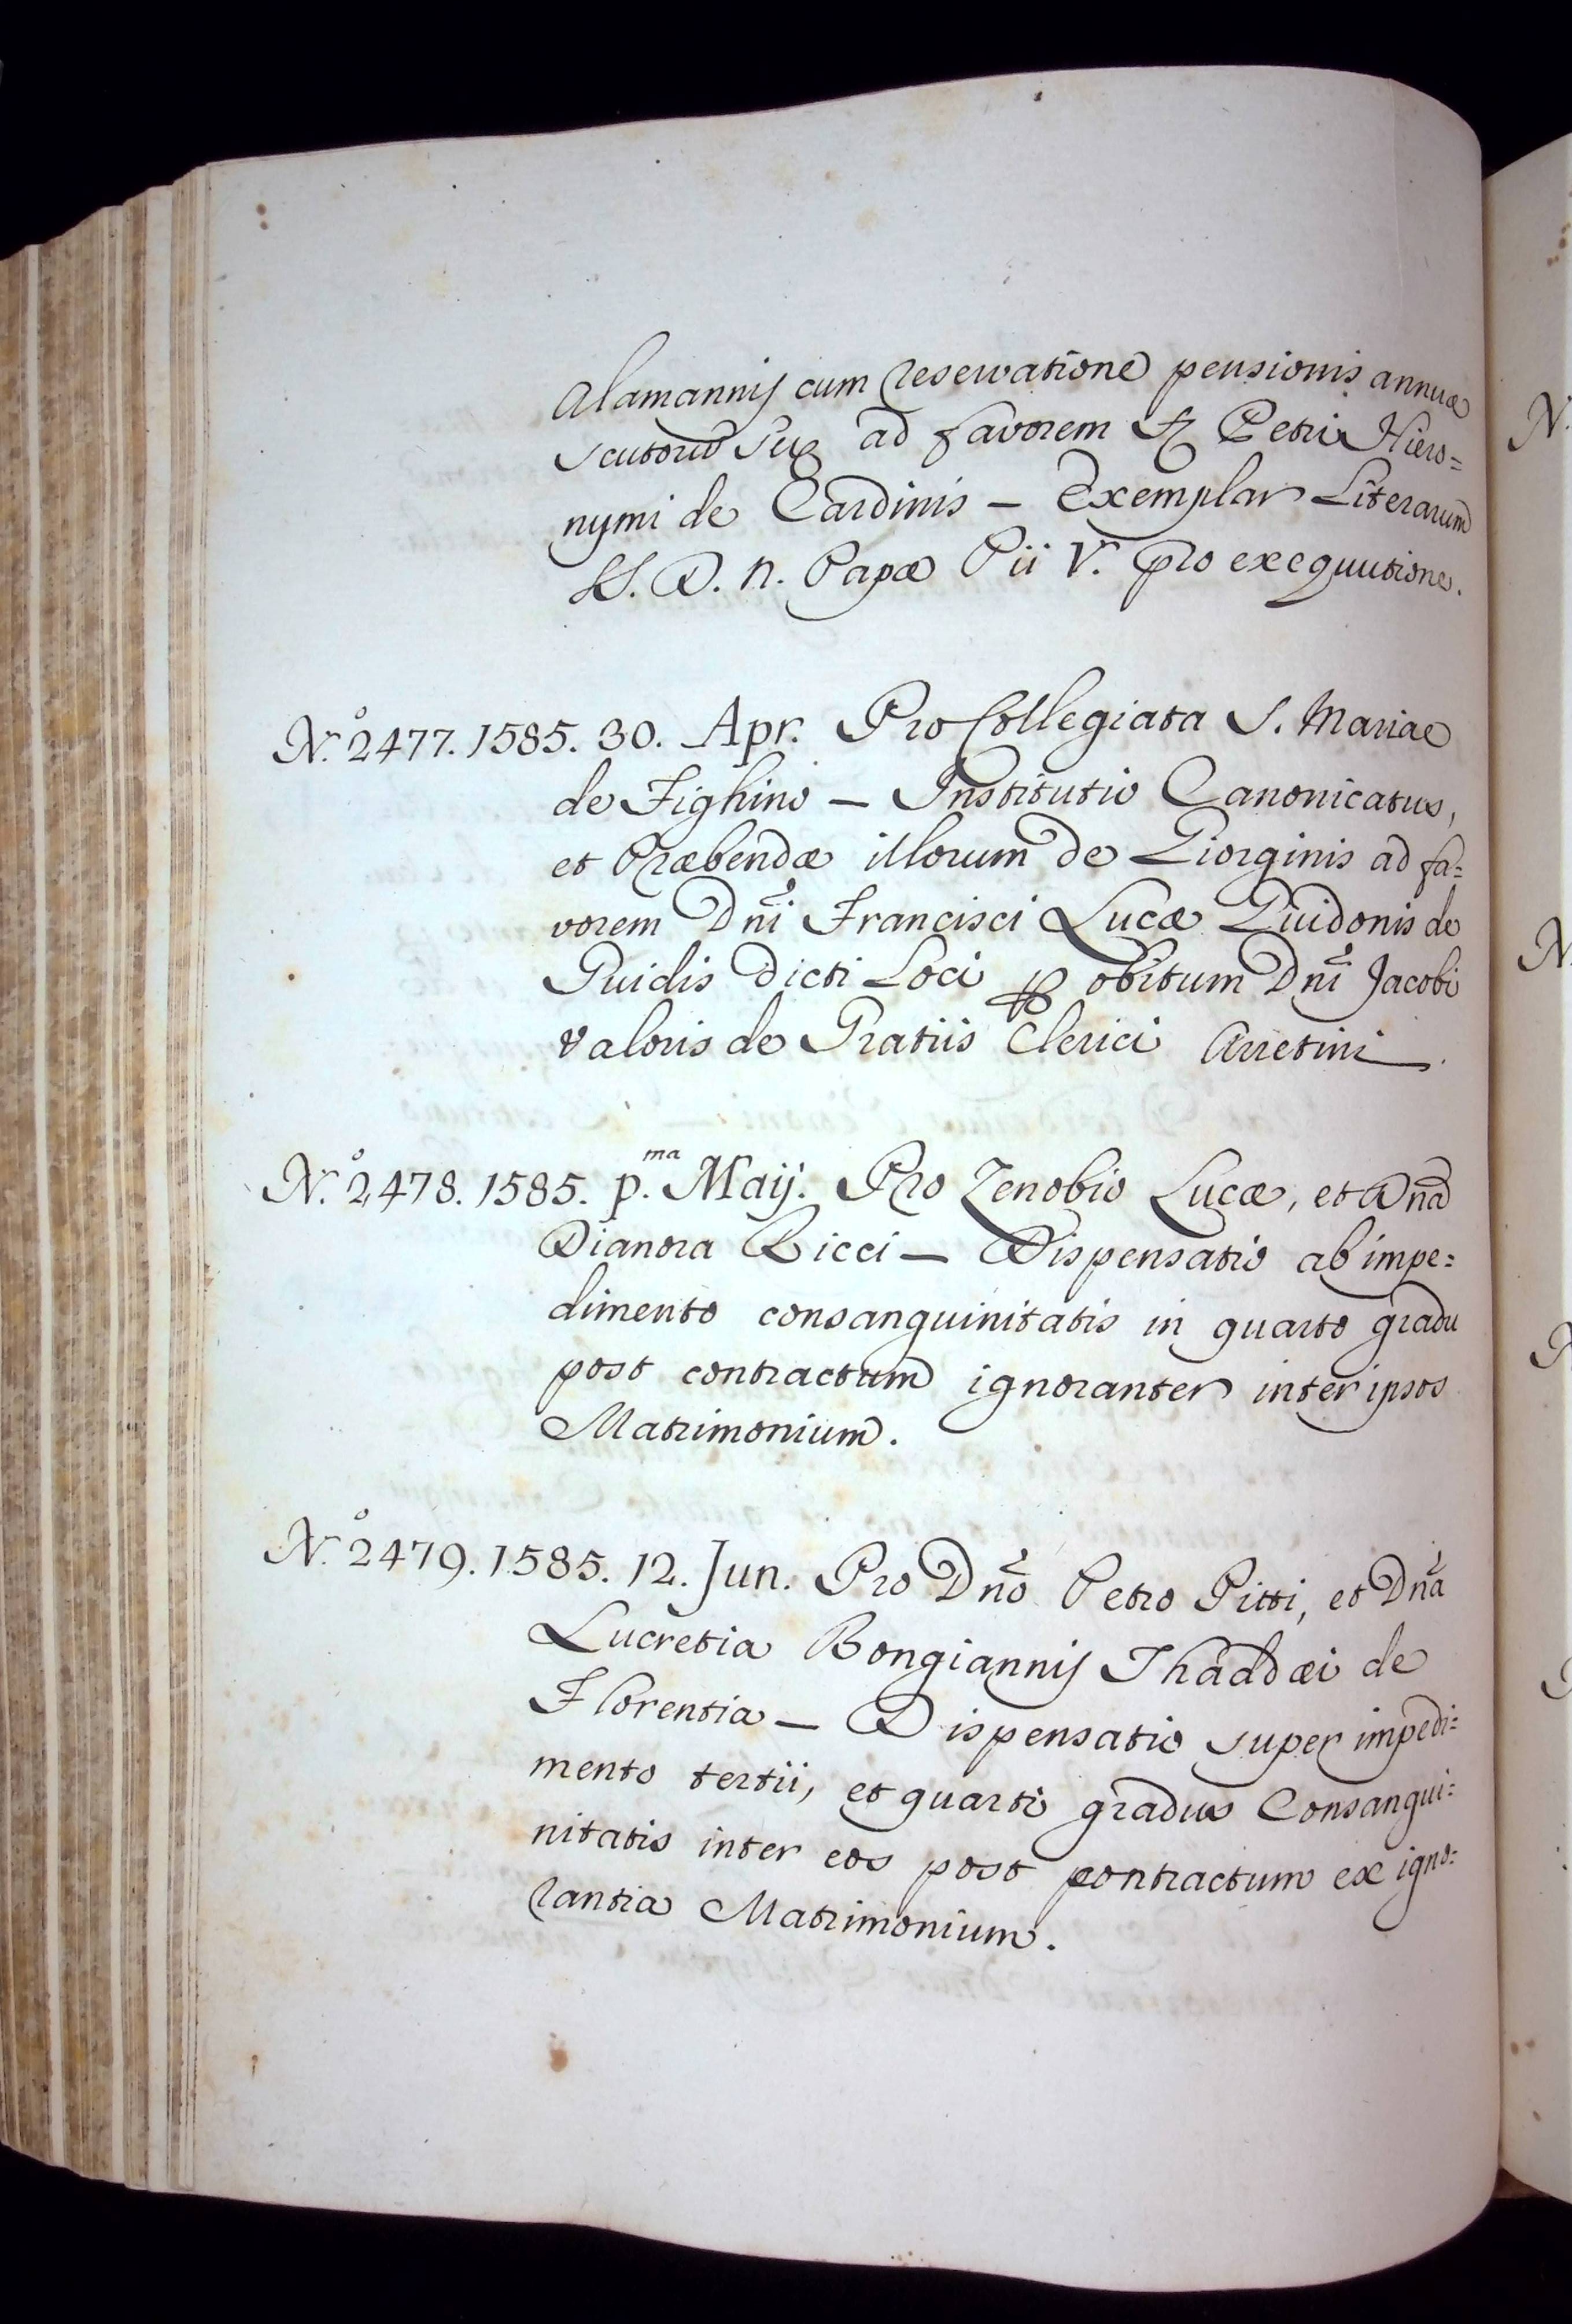 Alamannij cum reservatione pensionis annuæ
scutorũ sex ad favorem Petri Hiero=
nymi de Cardinis – Exemplar Literarum
S. D. N. Papæ Pii V. pro exequutione.
N.º 2477. 1585. 30. Apr. Pro Collegiata S. Mariae
de Fighino – Institutio Canonicatus,
et Præbendæ illorum de Giorginis ad fa=
vorem Dñi Francisci Lucæ Guidonis de
Guidis dicti Loci obitum Dñi Jacobi
Valoris de Gratiis Clerici Arretini.
N.º 2478. 1585. p.ma Maij. Pro Zenobio Lucæ, et Dñã
Dianora Ricci – Dispensatio ab impe=
dimento consanguinitatis in quarto gradu
post contractum ignoranter inter ipsos
Matrimonium.
N.º 2479. 1585. 12. Jun. Pro Dño Petro Pitti, et Dña
Lucretia Bongiannij Thaddæi de
Florentia – Dispensatio super impedi=
mento tertii, et quarti gradus Consangui=
nitatis inter eos post contractum ex igno=
rantia Matrimonium.